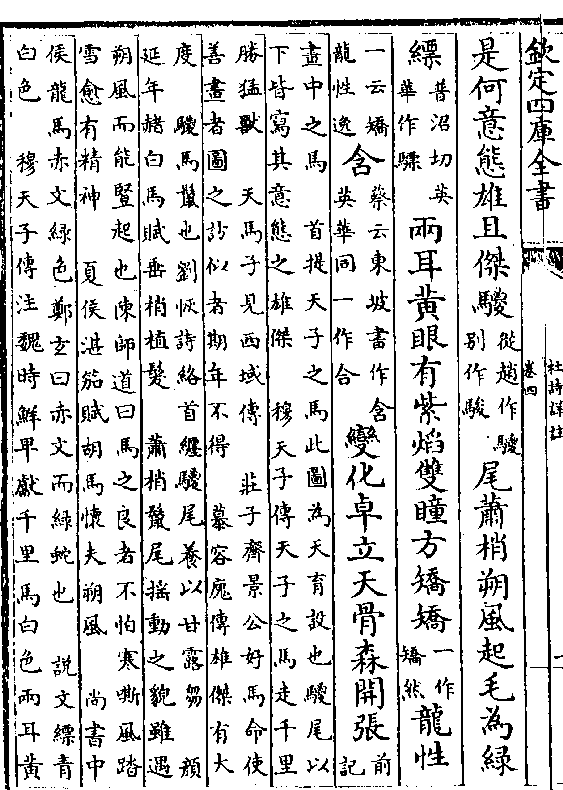 欽定四庫全書
杜詩詳註
卷四
是何意態雄且傑騣從趙作騣别作駿尾蕭梢朔風起毛為緑
縹普沼切英華作驃兩耳黄眼有紫焰雙瞳方矯矯一作矯然龍性
一云矯龍性逸含蔡云東坡書作含英華同一作合變化卓立天骨森開張前記
畫中之馬 首提天子之馬此圖為天育設也騣尾以
下皆寫其意態之雄傑 穆天子傳天子之馬走千里
勝猛獸 天馬子見西域傳 莊子齊景公好馬命使
善畫者圖之訪似者期年不得 慕容廆傳雄傑有大
度 騣馬鬛也劉恢詩絡首纒騣尾養以甘露芻 顔
延年赭白馬賦垂梢植髮 蕭梢鬛尾揺動之貌雖遇
朔風而能豎起也陳師道曰馬之良者不怕寒嘶風踏
雪愈有精神 夏侯湛笳賦胡馬懷夫朔風 尚書中
侯龍馬赤文緑色鄭玄曰赤文而緑蛇也 說文縹青
白色 穆天子傳注魏時鮮卑獻千里馬白色兩耳黄